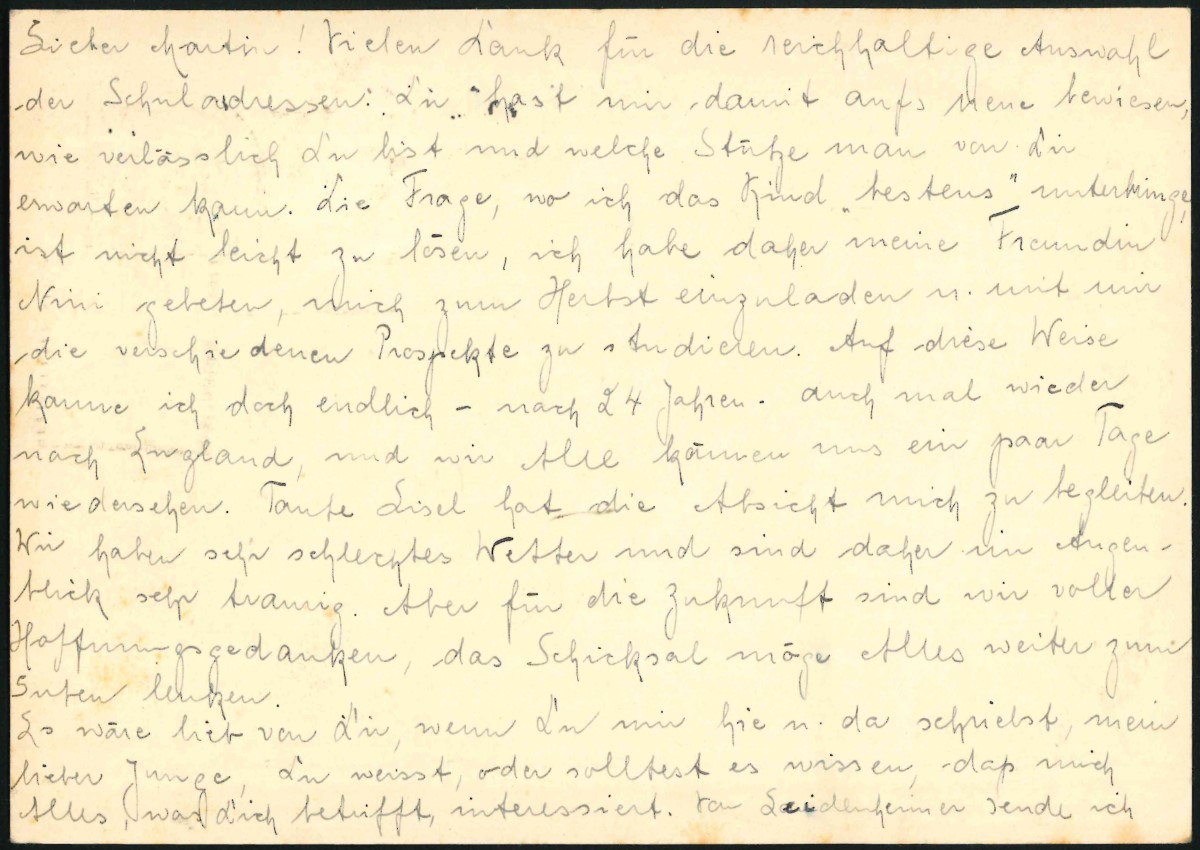 Lieber Martin! Vielen Dank für die reichhaltige Auswahl
der Schuladressen. Du hast mir damit aufs neue bewiesen,
wie verlässlich Du bist und welche Stütze man von Dir
erwarten kann. Die Frage, wo ich das Kind „bestens" unterbringe,
ist nicht leicht zu lösen, ich habe daher meine Freundin
Nini gebeten, mich zum Herbst einzuladen u. mit mir
die verschiedenen Prospekte zu studieren. Auf diese Weise
käme ich doch endlich - nach 24 Jahren - auch mal wieder
nach England, und wir Alle können uns ein paar Tage
wiedersehen. Tante Lisel hat die Absicht mich zu begleiten.
Wir haben sehr schlechtes Wetter und sind daher im Augen-
blick sehr traurig. Aber für die Zukunft sind wir voller
Hoffnungsgedanken, das Schicksal möge Alles weiter zum
Guten lenken.
Es wäre lieb von Dir, wenn Du mir hie u. da schriebst, mein
lieber Junge, Du weisst, oder solltest es wissen, daß mich
Alles, was Dich betrifft, interessiert. Von Leidenheimer sende ich